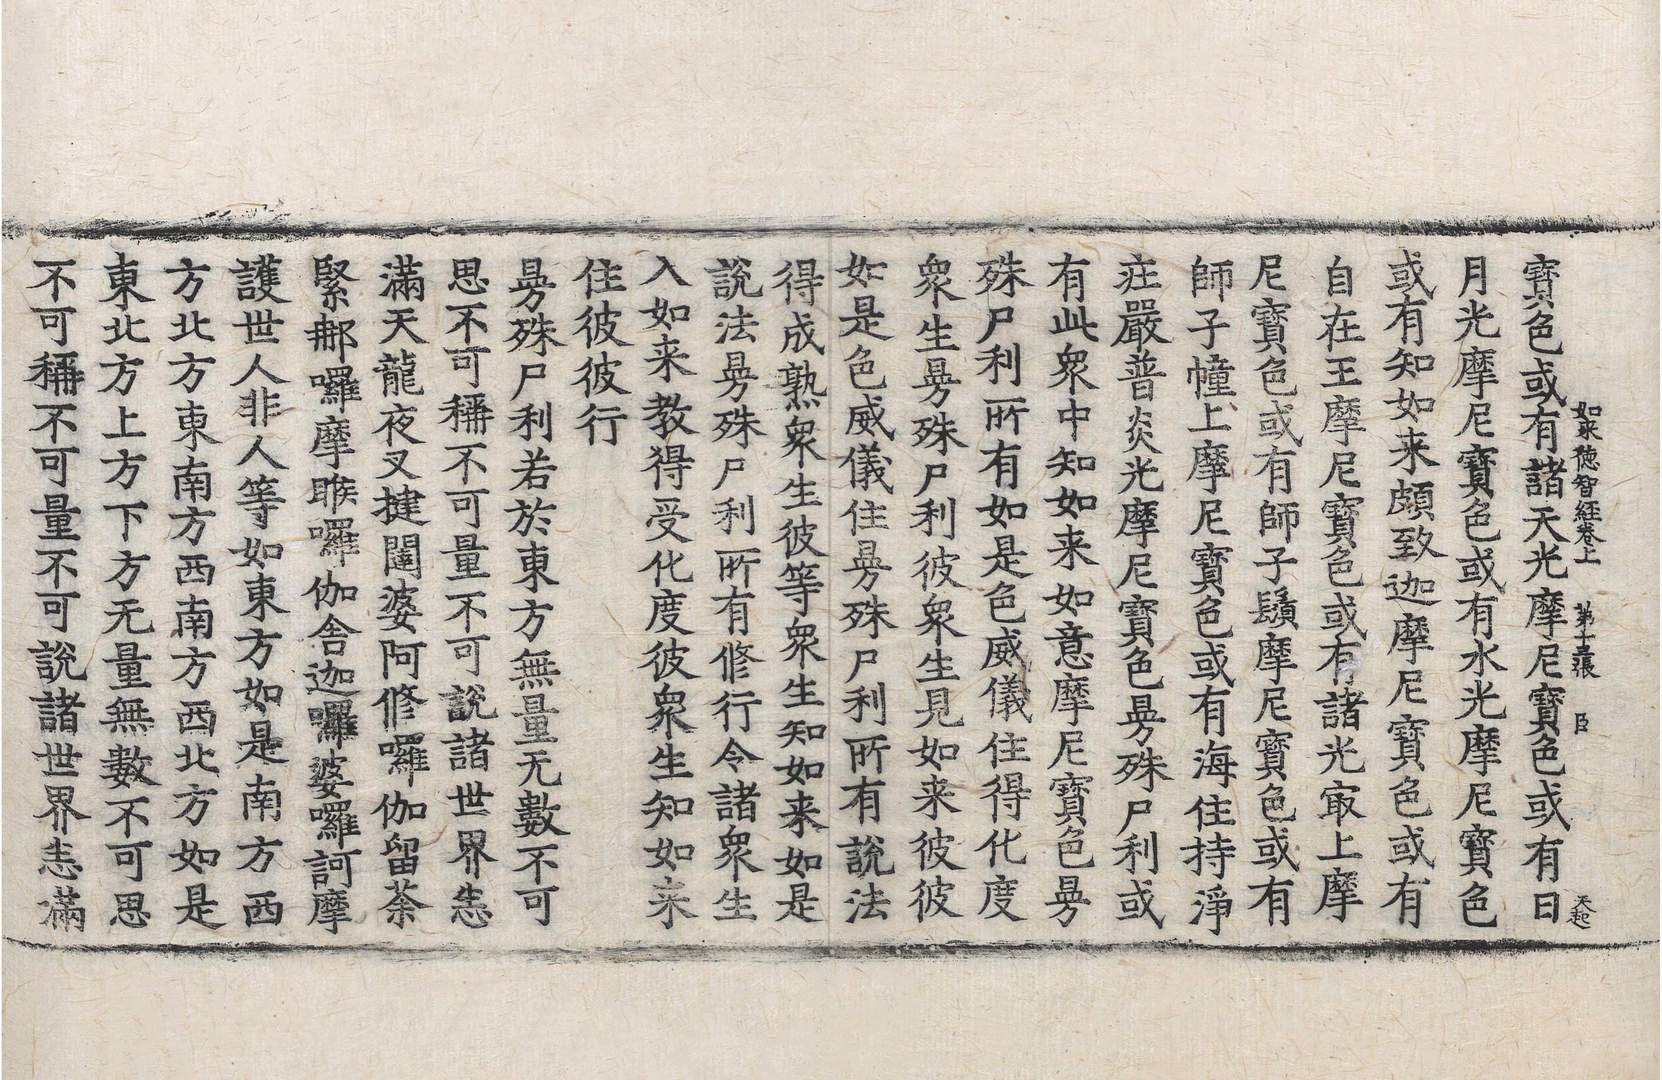 如來徳智経卷上 第 張 臣 天起
寶色或有諸天光摩尼寶色或有日
月光摩尼寶色或有水光摩尼寶色
或有知如来頗致迦摩尼寶色或有
自在王摩尼寶色或有諸光㝡上摩
尼寶色或有師子鬚摩尼寶色或有
師子幢上摩尼寶色或有海住持淨
莊嚴普炎光摩尼寶色曼殊尸利或
有此衆中知如来如意摩尼寶色曼
殊尸利所有如是色威儀住得化度
衆生曼殊尸利彼衆生見如来彼彼
如是色威儀住曼殊尸利所有說法
得成熟衆生彼等衆生知如来如是
說法曼殊尸利所有修行令諸衆生
入如来教得受化度彼衆生知如来
住彼彼行
曼殊尸利若於東方無量无數不可
思不可稱不可量不可說諸世界悉
滿天龍夜叉揵闥婆阿修囉伽留荼
緊那囉摩睺囉伽舍迦囉婆囉訶摩
護世人非人等如東方如是南方西
方北方東南方西南方西北方如是
東北方上方下方无量無數不可思
不可稱不可量不可說諸世界悉滿